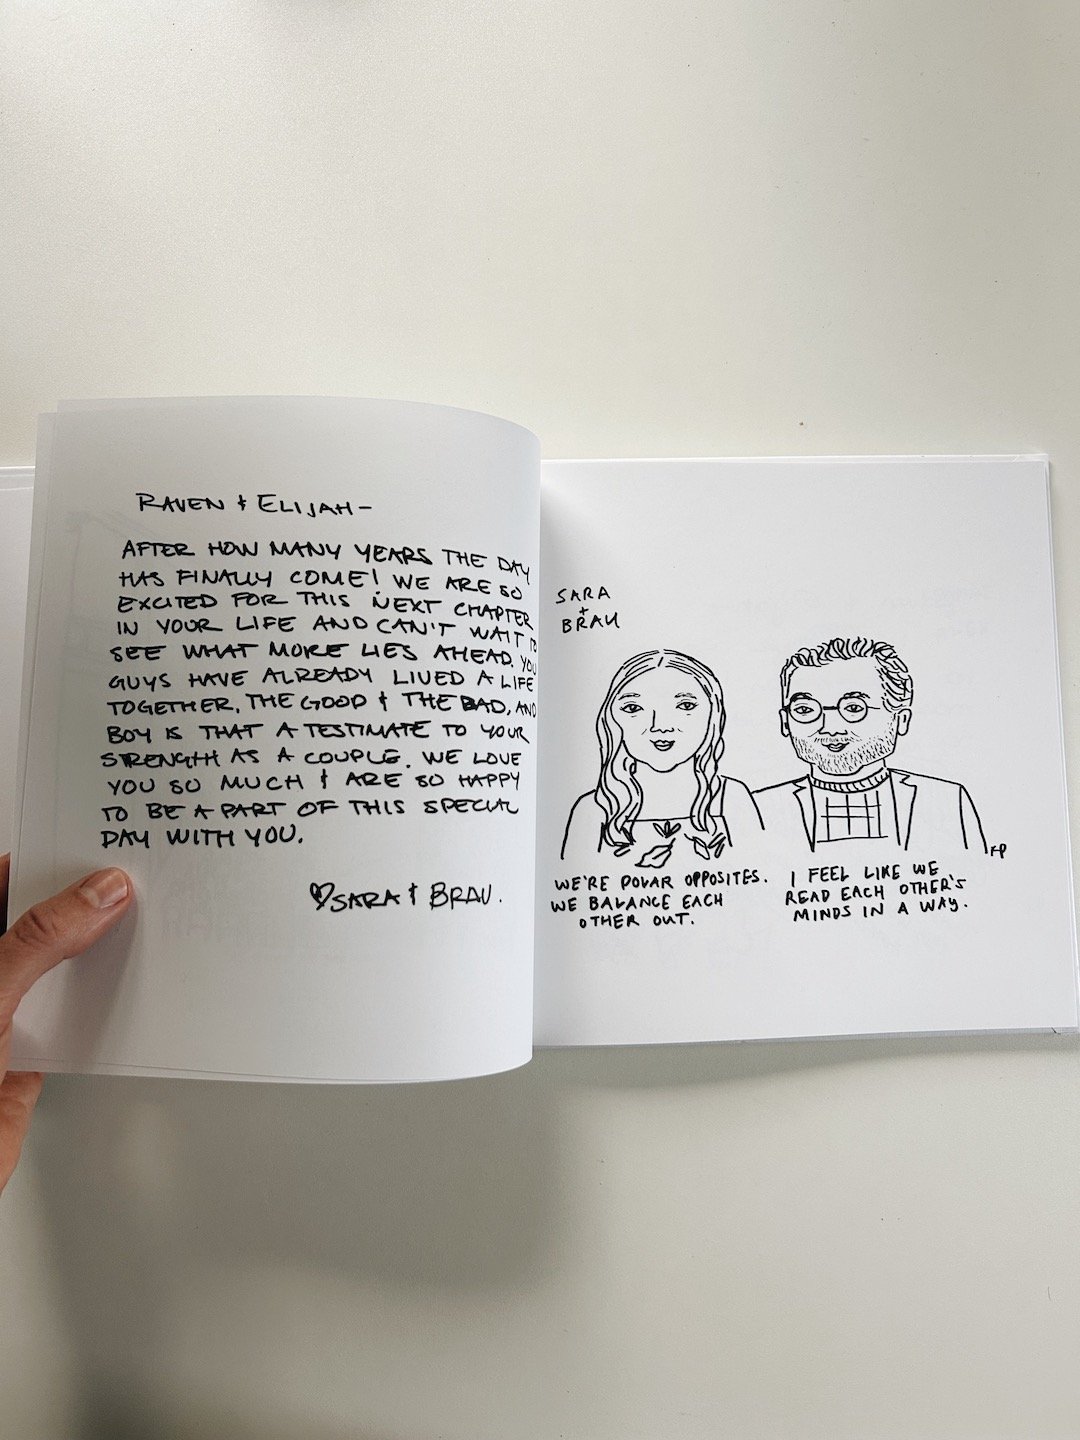 RAVEN & ELIJAH-
AFTER HOW MANY YEARS THE DAY
HAS FINALLY COME! WE ARE SO
EXCITED FOR THIS NEXT CHAPTER
IN YOUR LIFE AND CAN'T WAIT TO
SEE WHAT MORE LIES AHEAD. YOU
GUYS HAVE ALREADY LIVED A LIFE
TOGETHER, THE GOOD & THE BAD, AND
BOY IS THAT A TESTIMATE TO YOUR
STRENGTH AS A COUPLE. WE LOVE
YOU SO MUCH & ARE SO HAPPY
TO BE A PART OF THIS SPECIAL
DAY WITH YOU.
♡SARA & BRAU.
SARA
+
BRAU
WE'RE POLAR OPPOSITES.
WE BALANCE EACH
OTHER OUT.
I FEEL LIKE WE
READ EACH OTHER'S
MINDS IN A WAY.